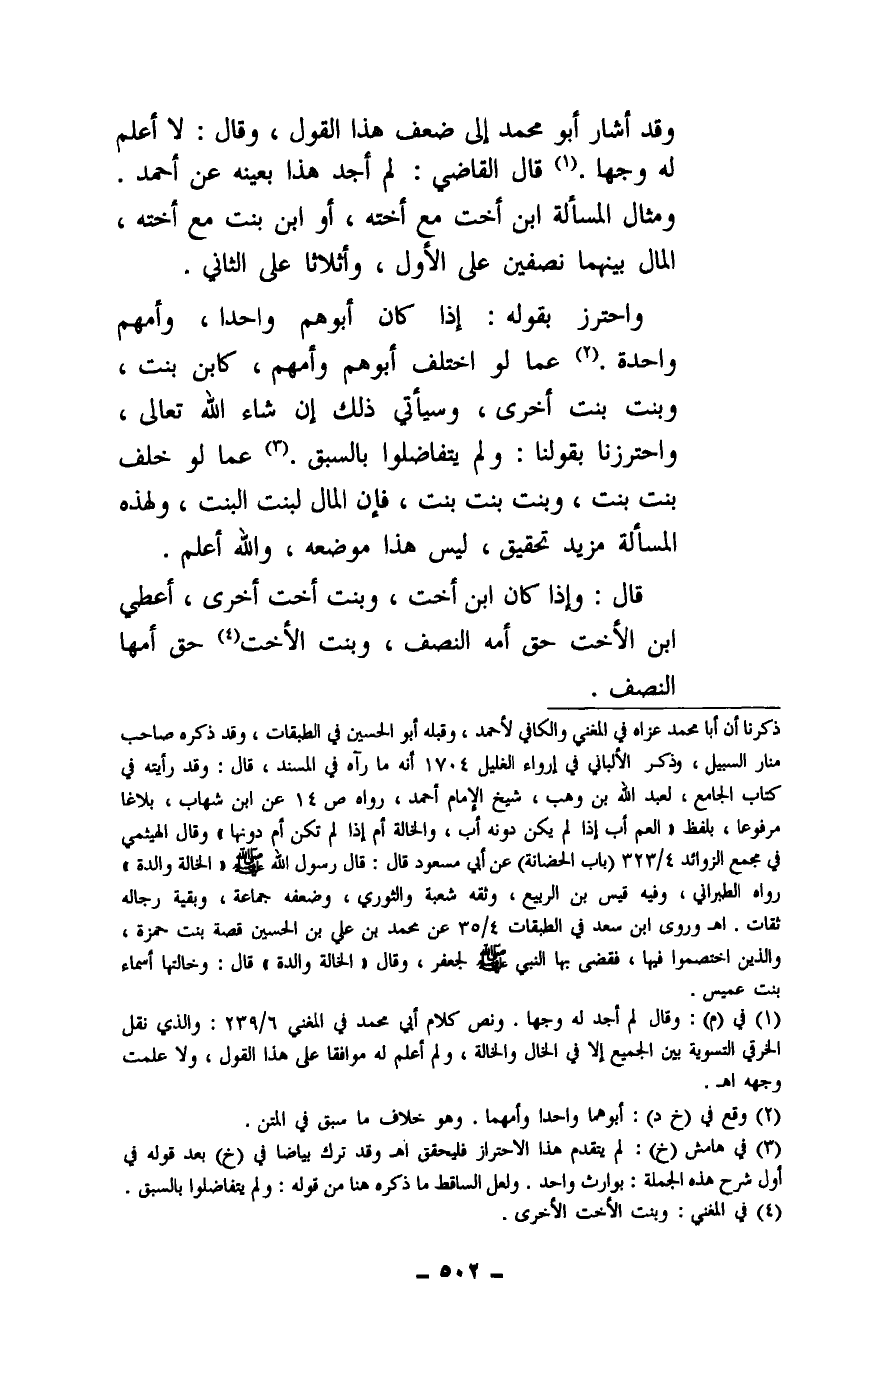 وقد أشار أبو محمد إلى ضعف هذا القول ، وقال : لا أعلم
له وجها .(١) قال القاضي : لم أجد هذا بعينه عن أحمد .
ومثال المسألة ابن أخت مع أخته ، أو ابن بنت مع أخته ،
المال بينهما نصفين على الأول ، وأثلاثا على الثاني .
واحترز بقوله : إذا كان أبوهم واحدا ، وأمهم
واحدة .(٢) عما لو اختلف أبوهم وأمهم ، كابن بنت ،
وبنت بنت أخرى ، وسيأتي ذلك إن شاء الله تعالى ،
واحترزنا بقولنا : ولم يتفاضلوا بالسبق .(٣) عما لو خلف
بنت بنت ، وبنت بنت بنت ، فإن المال لبنت البنت ، ولهذه
المسألة مزيد تحقيق ، ليس هذا موضعه ، والله أعلم .
قال : وإذا كان ابن أخت ، وبنت أخت أخرى ، أعطي
ابن الأخت حق أمه النصف ، وبنت الأخت(٤) حق أمها
النصف .
ذكرنا أن أبا محمد عزاه في المغني والكافي لأحمد ، وقبله أبو الحسين في الطبقات ، وقد ذكره صاحب
منار السبيل ، وذكر الألباني في إرواء الغليل ١٧٠٤ أنه ما رآه في المسند ، قال : وقد رأيته في
كتاب الجامع ، لعبد الله بن وهب ، شيخ الإمام أحمد ، رواه ص ١٤ عن ابن شهاب ، بلاغا
مرفوعا ، بلفظ « العم أب إذا لم يكن دونه أب ، والخالة أم إذا لم تكن أم دونها » وقال الهيثمي
في مجمع الزوائد ٣٢٣/٤ (باب الحضانة) عن أبي مسعود قال : قال رسول الله ﷺ « الخالة والدة »
رواه الطبراني ، وفيه قيس بن الربيع ، وثقه شعبة والثوري ، وضعفه جماعة ، وبقية رجاله
ثقات . اهـ وروى ابن سعد في الطبقات ٣٥/٤ عن محمد بن علي بن الحسين قصة بنت حمزة ،
والذين اختصموا فيها ، فقضى بها النبي ﷺ لجعفر ، وقال « الخالة والدة » قال : وخالتها أسماء
بنت عميس .
(١) في (م) : وقال لم أجد له وجها . ونص كلام أبي محمد في المغني ٢٣٩/٦ : والذي نقل
الخرقي التسوية بين الجميع إلا في الخال والخالة ، ولم أعلم له موافقا على هذا القول ، ولا علمت
وجهه اهـ .
(٢) وقع في (خ د) : أبوهما واحدا وأمهما . وهو خلاف ما سبق في المتن .
(٣) في هامش (خ) : لم يتقدم هذا الاحتراز فليحقق اهـ وقد ترك بياضا في (خ) بعد قوله في
أول شرح هذه الجملة : بوارث واحد . ولعل الساقط ما ذكره هنا من قوله : ولم يتفاضلوا بالسبق .
(٤) في المغني : وبنت الأخت الأخرى .
ـ ٥٠٢ ـ